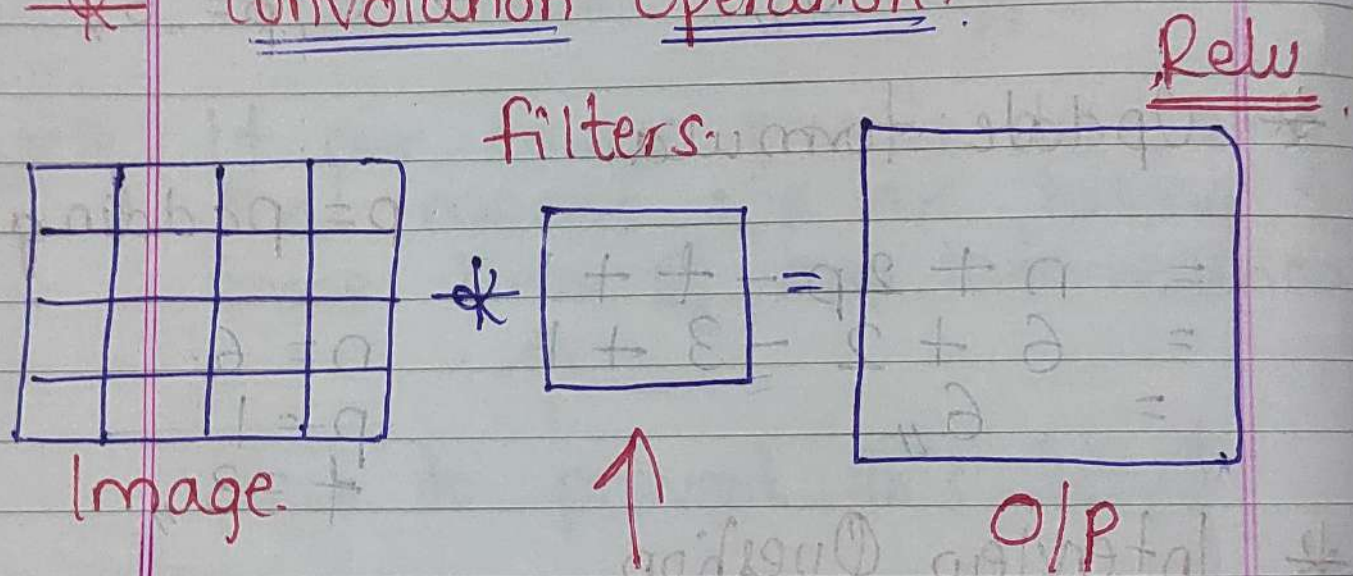 * Convolution Operation.
Relu
filters.
* =
Image.
O/P